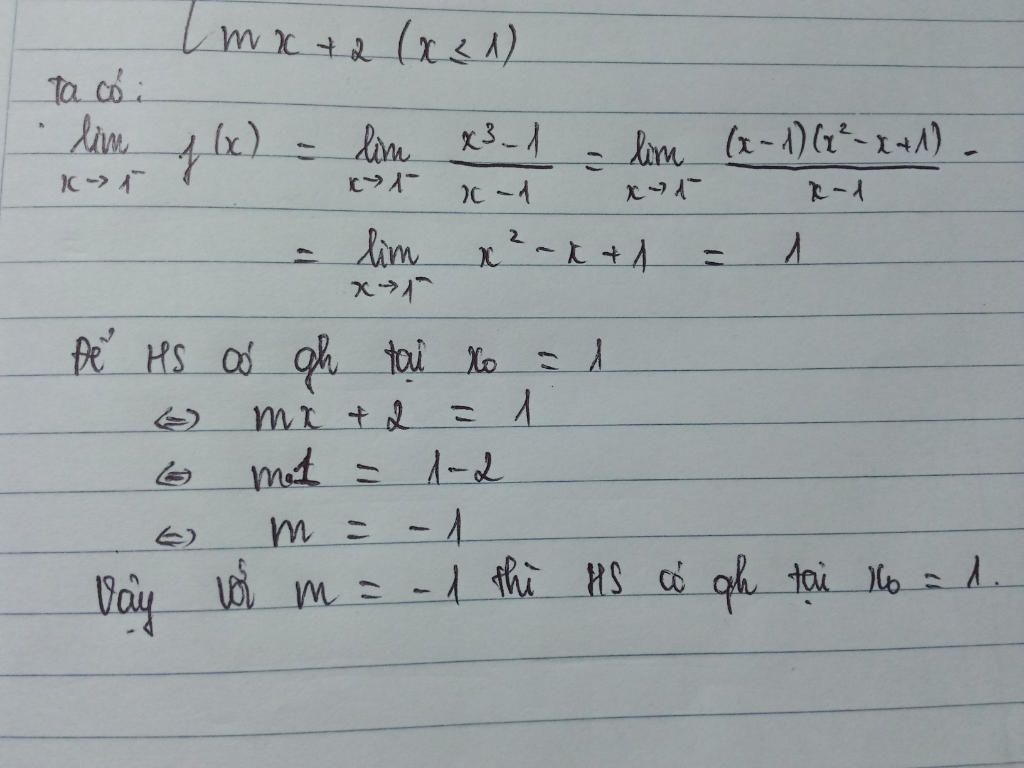 mx + 2 (x ≤ 1)
Ta có:
lim x→1⁻ f(x) = lim x→1⁻ (x³ - 1)/(x - 1) = lim x→1⁻ ((x - 1)(x² - x + 1))/(x - 1) -
= lim x→1⁻ x² - x + 1 = 1
Để HS có gh tại x₀ = 1
⇔ mx + 2 = 1
⇔ m.1 = 1 - 2
⇔ m = - 1
Vậy với m = - 1 thì HS có gh tại x₀ = 1.